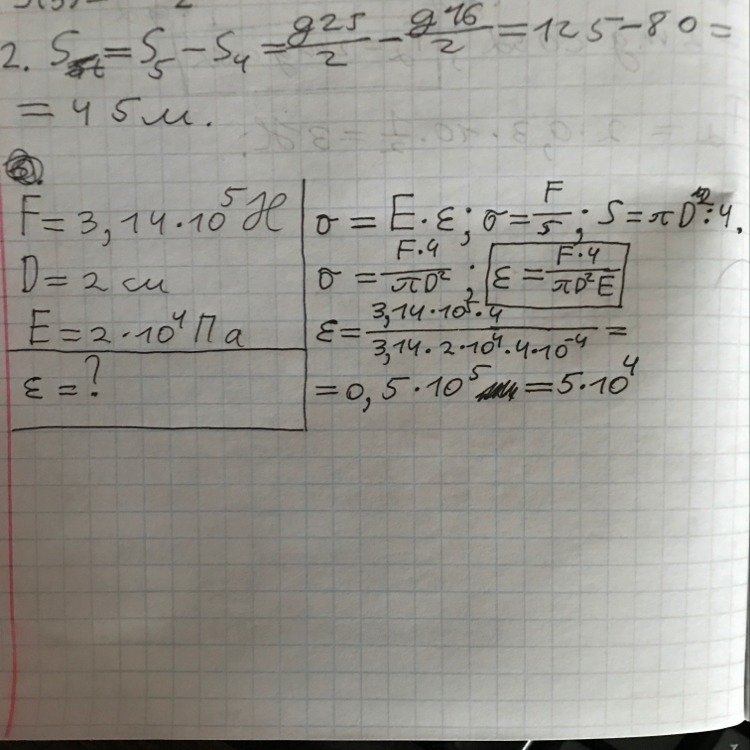 2. S = S₅ - S₄ = g25/2 - g16/2 = 125 - 80 =
= 45 м.
F = 3,14·10⁵ Н
D = 2 см
E = 2·10⁴ Па
ε = ?
σ = E·ε; σ = F/S; S = πD²:4.
σ = F·4/πD²; ε = F·4/πD²E
ε = 3,14·10⁵·4/3,14·2·10⁴·4·10⁻⁴ =
= 0,5·10⁵ = 5·10⁴